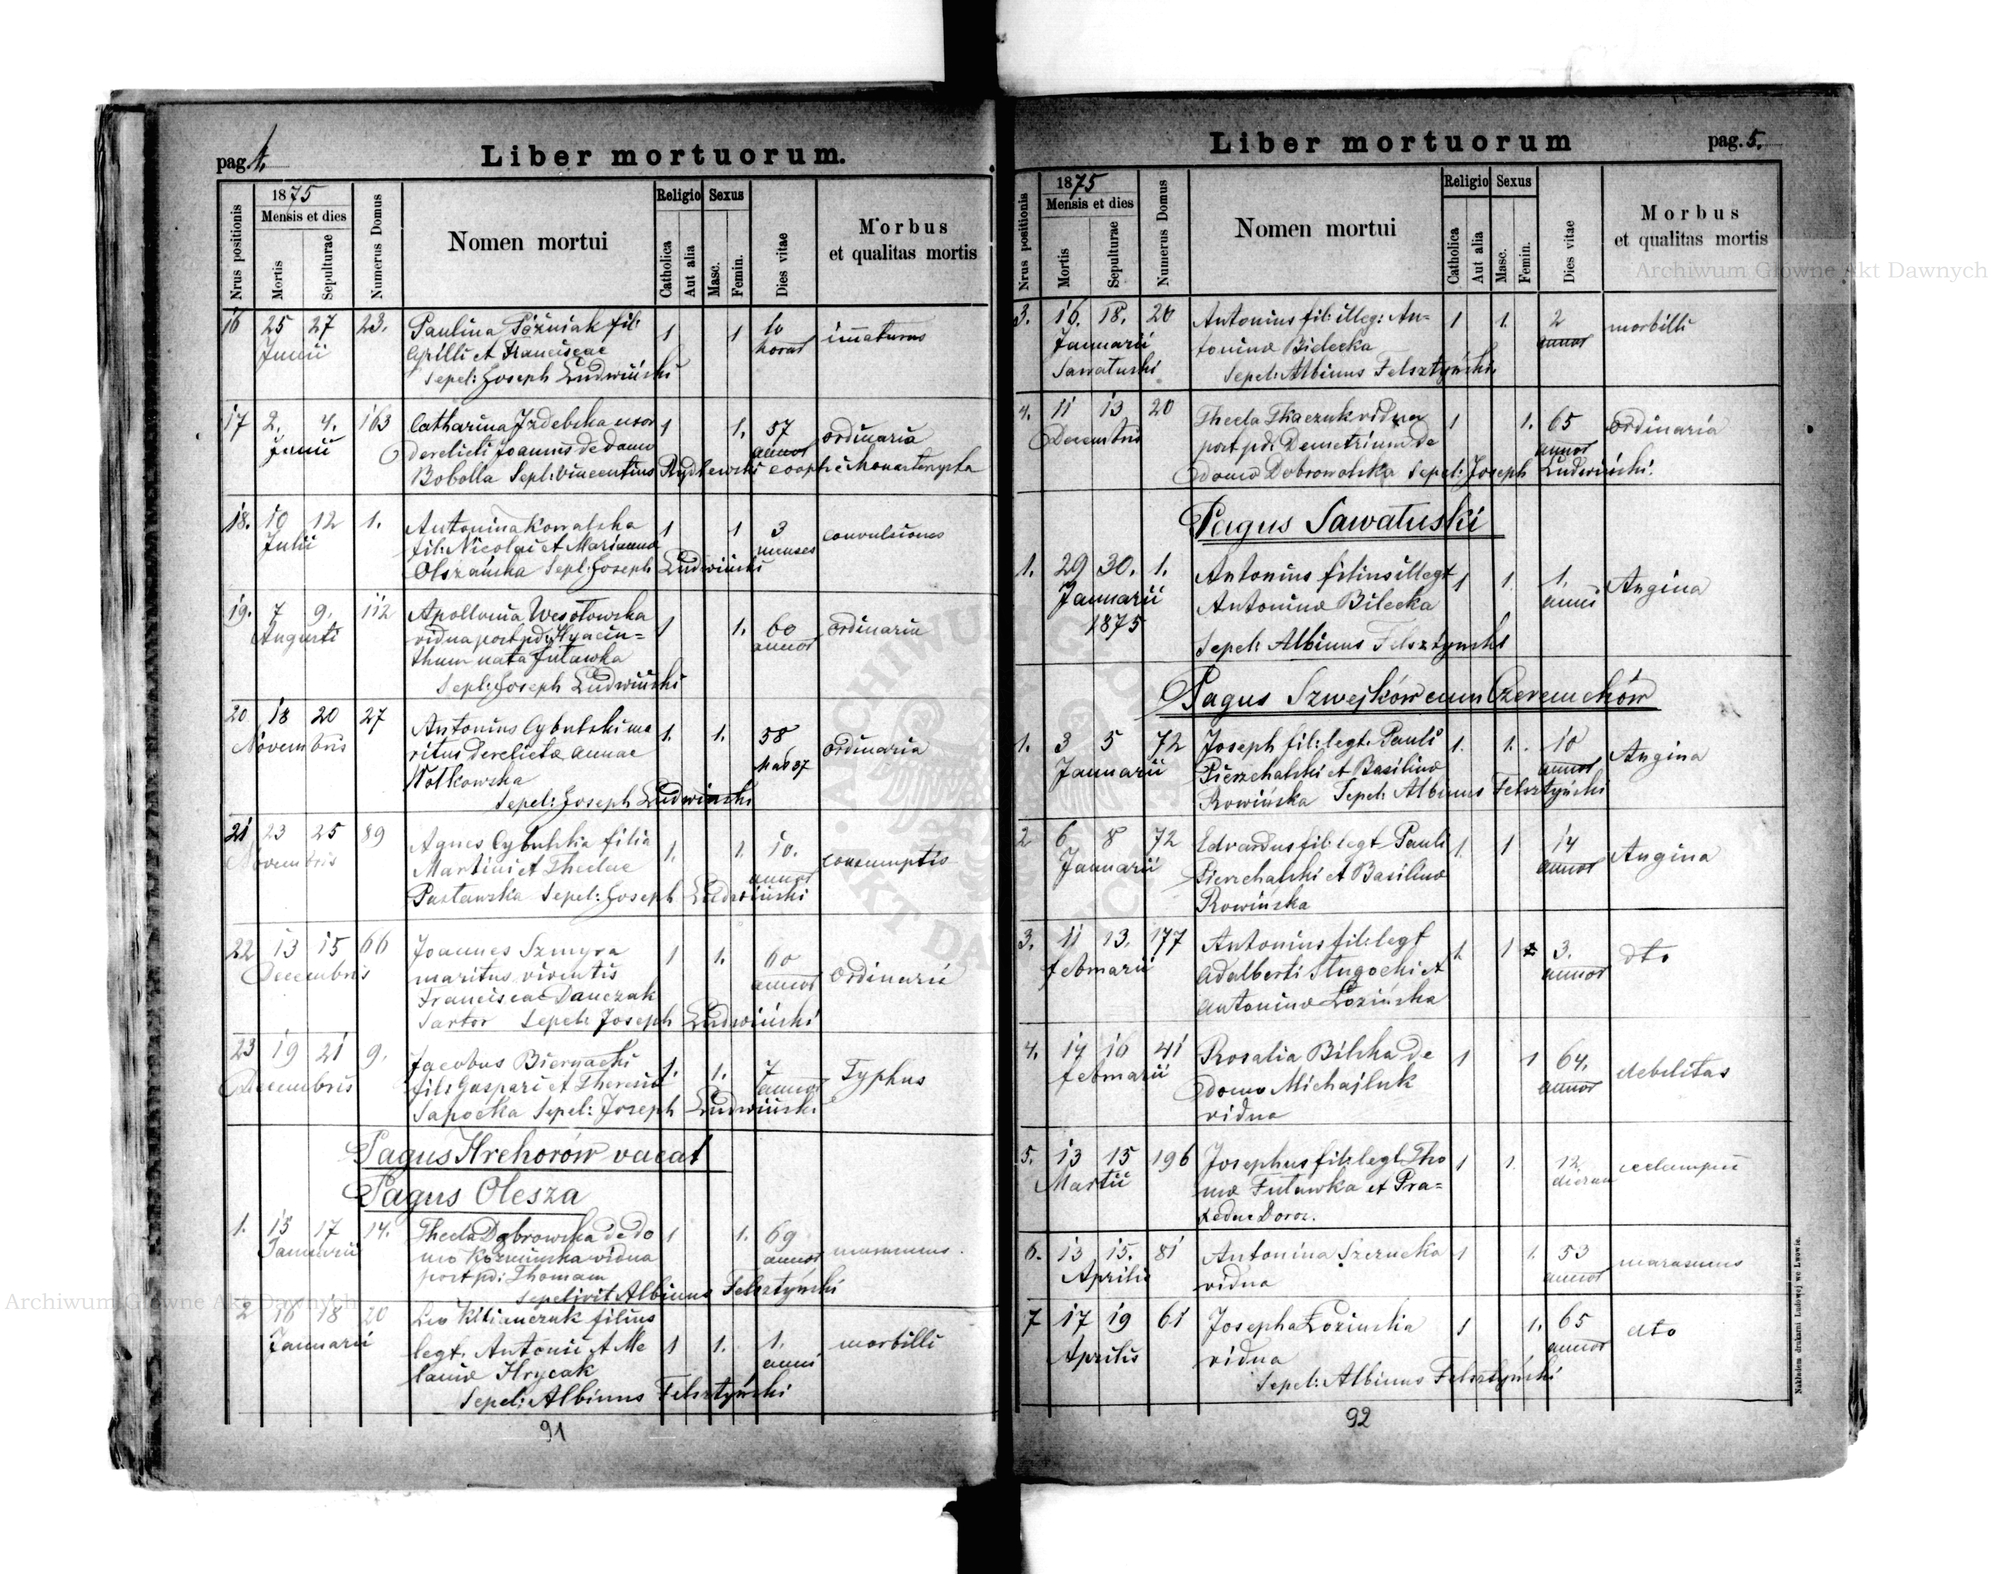 pag. 4.
Liber mortuorum.
Nrus positionis
1875
Mensis et dies
Mortis
Sepulturae
Numerus Domus
Nomen mortui
Religio
Catholica
Aut alia
Sexus
Masc.
Femin.
Dies vitae
Morbus
et qualitas mortis
16 25 27 23. Paulina Poźniak fil: 1 1 10 immaturus
Junii Cyrilli et Franciscae horas
Sepel: Joseph Ludwiński
17 2. 4. 163 Catharina Izdebska uxor 1 1. 57 ordinaria
Junii derelicti Joannis de domo annos
Bobolla Sepl: Vincentius Rydlewski
18. 10 12 1. Antonina Kowalska 1 1 3 convulsiones
Julii fil: Nicolai et Marianna menses
Olszańska Sepl: Joseph Ludwiński
19. 7 9. 112 Apollonia Wesołowska 1 1. 60 ordinaria
Augusti vidua post pd: Hyacin= annos
thum nata Futawka
Sepl: Joseph Ludwiński
20 18 20 27 Antonius Cybulski ma 1. 1. 58 ordinaria
Novembris ritus derelictæ Annae
Wołkowska
Sepel: Joseph Ludwiński
21 23 25 89 Agnes Cybulska filia 1. 1. 10. consumptio
Novembris Martini et Theclae annos
Pastawska Sepel: Joseph Ludwiński
22 13 15 66 Joannes Szmyra 1 1. 60 Ordinaria
Decembris maritus viventis annos
Francisca Danczak
Sartor Sepel: Joseph Ludwiński
23 19 21 9. Jacobus Biernacki 1. 1. 7 Typhus
Decembris fil: Gaspari et Theresia annos
Sapocka Sepel: Joseph Ludwiński
Pagus Hrehorów vacat
Pagus Olesza
1. 15 17 14. Thecla Dąbrowska de do 1 1. 69 marasmus.
Januarii mo vidua annos
post pd: Thomam
Sepelivit Albinus Felsztyński
2 16 18 20 Leo Kitianczuk filius
Januarii legt. Antonii et Me 1 1. 1. morbilli
laniæ Hrycak anni
Sepel: Albinus Felsztyński
91
Liber mortuorum
pag. 5.
Nrus positionis
1875
Mensis et dies
Mortis
Sepulturae
Numerus Domus
Nomen mortui
Religio
Catholica
Aut alia
Sexus
Masc.
Femin.
Dies vitae
Morbus
et qualitas mortis
3. 16. 18. 20 Antonius fil: illeg: An= 1 1. 2 morbilli
Januarii toninæ Bielecka annos
Sawaluski Sepel: Albinus Felsztyński
4. 11 13 20 Thecla Tkaczuk vidua 1 1. 65 ordinaria
Decembris post pd: Demetrium de annos
domo Dobrowolska Sepel: Joseph Ludwiński.
Pagus Sawałuski
1. 29 30. 1. Antonius filius illegt 1 1. 1. Angina
Januarii Antoninæ Bilecka anni
1875
Sepel: Albinus Felsztyński
Pagus Szwejków cum Czeremchów
1. 3 5 72 Joseph fil: legt. Pauli 1. 1. 10 Angina
Januarii Pierzchalski et Basilinæ annos
Rowińska Sepel: Albinus Felsztyński
2 6 8 72 Edvardus fil: legt Pauli 1. 1 14 Angina
Januarii Pierzchalski et Basilinæ annos
Rowińska
3. 11 13. 177 Antonius fil: legt 1. 1 3. dto
februarii Adalberti Stugocki et annos
Antoninæ Łozińska
4. 14 16 41 Rosalia Bilska de 1 1 64. debilitas
februarii domo Michajluk annos
vidua
5. 13 15 196 Josephus fil: legt. Tho 1 1. 12.
Martii mæ Futawka et Pra= dierum
xedae Doroz.
6. 13 15. 81 Antonina Szerucka 1 1. 53 marasmus
Aprilis vidua annos
7 17 19 61 Josepha Łozinska 1 1. 65 dto
Aprilis vidua annos
Sepel: Albinus Felsztyński
92
Nakładem drukarni Ludowej we Lwowie.
Archiwum Główne Akt Dawnych
Archiwum Główne Akt Dawnych